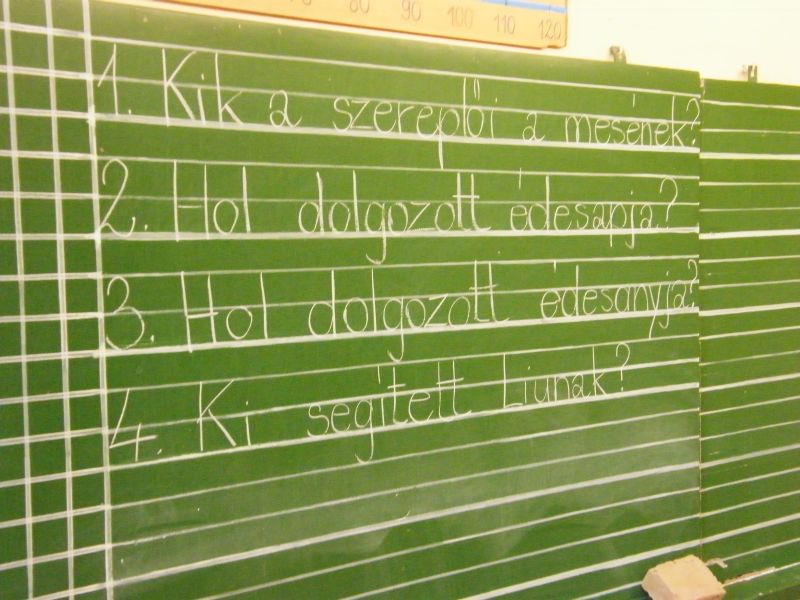 80 90 100 110 120
1. Kik a szereplői a mesének?
2. Hol dolgozott édesapja?
3. Hol dolgozott édesanyja?
4. Ki segített Liunak?